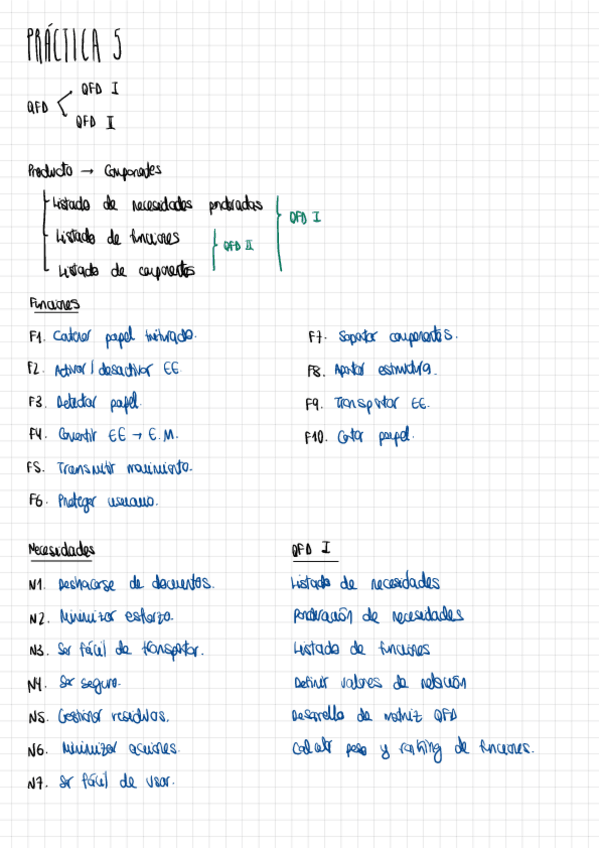 PRÁCTICA 5
QFD
QFD I
QFD II
Producto → Componentes
Listado de necesidades ponderadas
Listado de funciones
Listado de componentes
QFD II
QFD I
Funciones
F1. Contener papel triturado.
F2. Activar / desactivar EE
F3. Detectar papel.
F4. Convertir EE → E.M.
F5. Transmitir movimiento.
F6. Proteger usuario.
F7. Soportar componentes.
F8. Aportar estructura.
F9. Transportar EE.
F10. Cortar papel.
Necesidades
N1. Deshacerse de documentos.
N2. Minimizar esfuerzo.
N3. Ser fácil de transportar.
N4. Ser seguro.
N5. Gestionar residuos.
N6. Minimizar acciones.
N7. Ser fácil de usar.
QFD I
Listado de necesidades
Ponderación de necesidades
Listado de funciones
Definir valores de relación
Desarrollo de matriz QFD
Calcular peso y ranking de funciones.